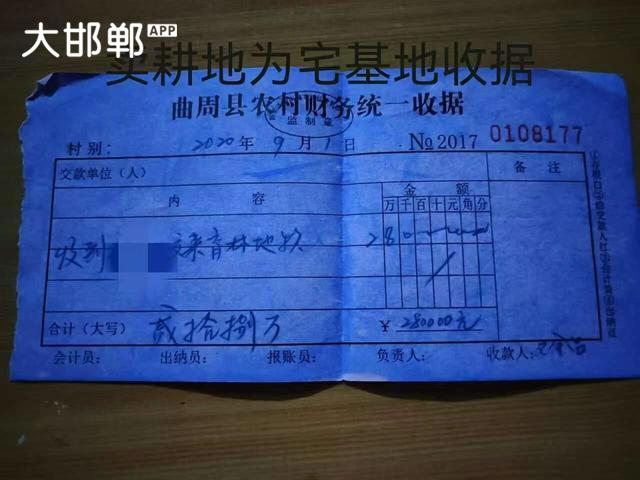 大邯郸 APP
卖耕地为宅基地收据
曲周县农村财务统一收据
监制章
村别： 2020年9月1日 №2017 0108177
交款单位(人) 金额 备注
内容 万千百十元角分
收到 交来育林地款 280
合计(大写) 贰拾捌万 ￥280000元
会计员： 出纳员： 报账员： 负责人： 收款人：